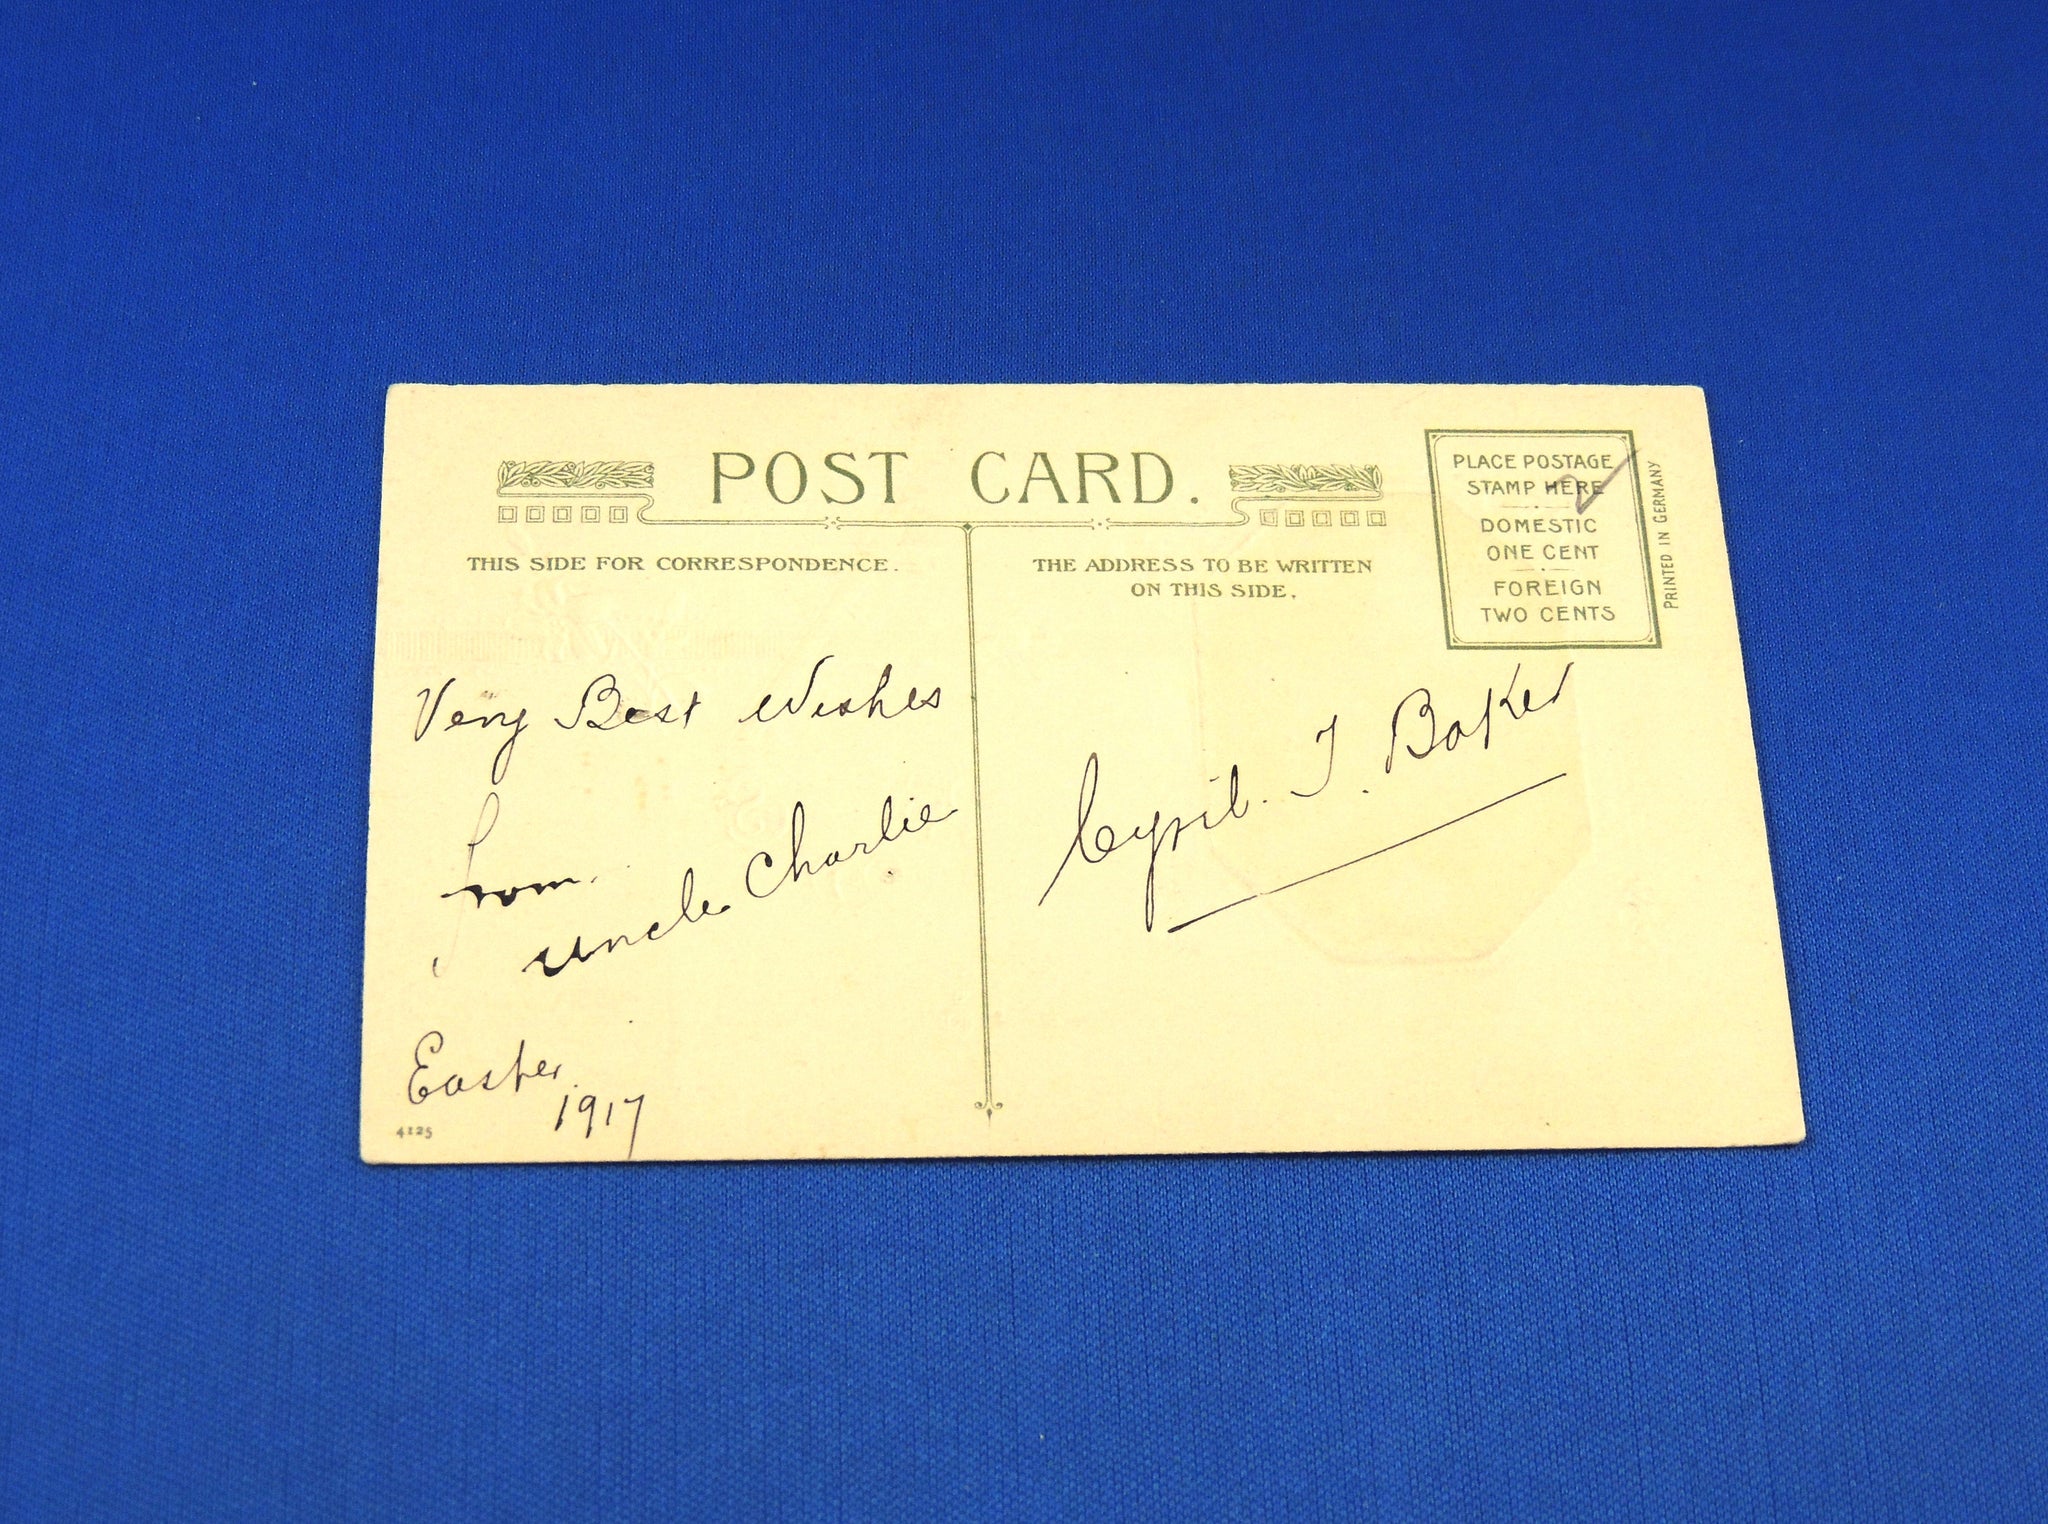 POST CARD.
THIS SIDE FOR CORRESPONDENCE.
THE ADDRESS TO BE WRITTEN
ON THIS SIDE.
PLACE POSTAGE
STAMP HERE
DOMESTIC
ONE CENT
FOREIGN
TWO CENTS
PRINTED IN GERMANY
Very Best Wishes
from
uncle Charlie
Easter
1917
4125
Cyril. J. Baker